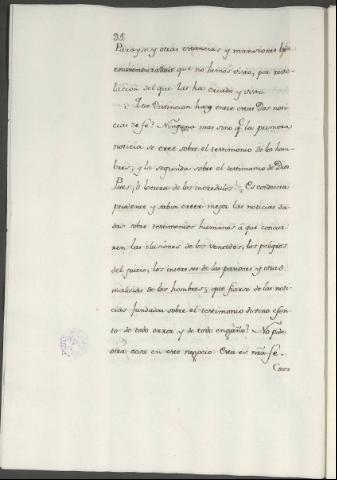 38.
Parayso y otras estancias y mansiones
que no hemos visto, por reve-
lacion del que las ha criado y visto.
¿Que distincion hay entre creer dos noti-
cias de fe? Ninguna mas sino q.e la primera
noticia se cree sobre el testimonio de los hom-
bres, y la segunda sobre el testimonio de Dios.
Pues, ô locura de los incredulos! ¿Es conducta
prudente y sabia creer mejor las noticias da-
das sobre testimonios humanos â que concur-
ren las ilusiones de los sentidos, los peligros
del juicio, los intereses de las pasiones y otras
malicias de los hombres; que fiarse de las noti-
cias fundadas sobre el testimonio divino esen-
to de todo error y de todo engaño? No pide
otra cosa en este negocio. Esta es nrâ fe.